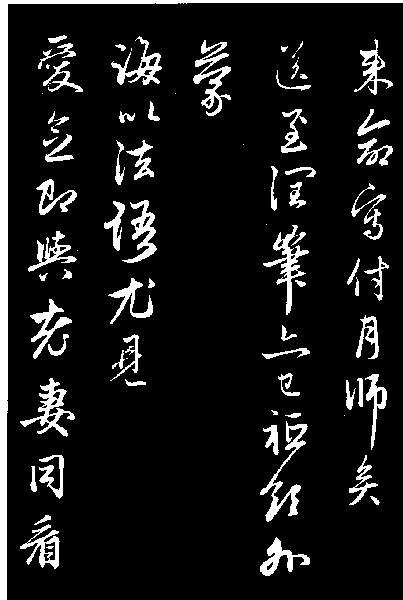 来命寫付月師矣
送至潤筆亦已祗領外
蒙
誨以法語尤見
愛念即與老妻同看